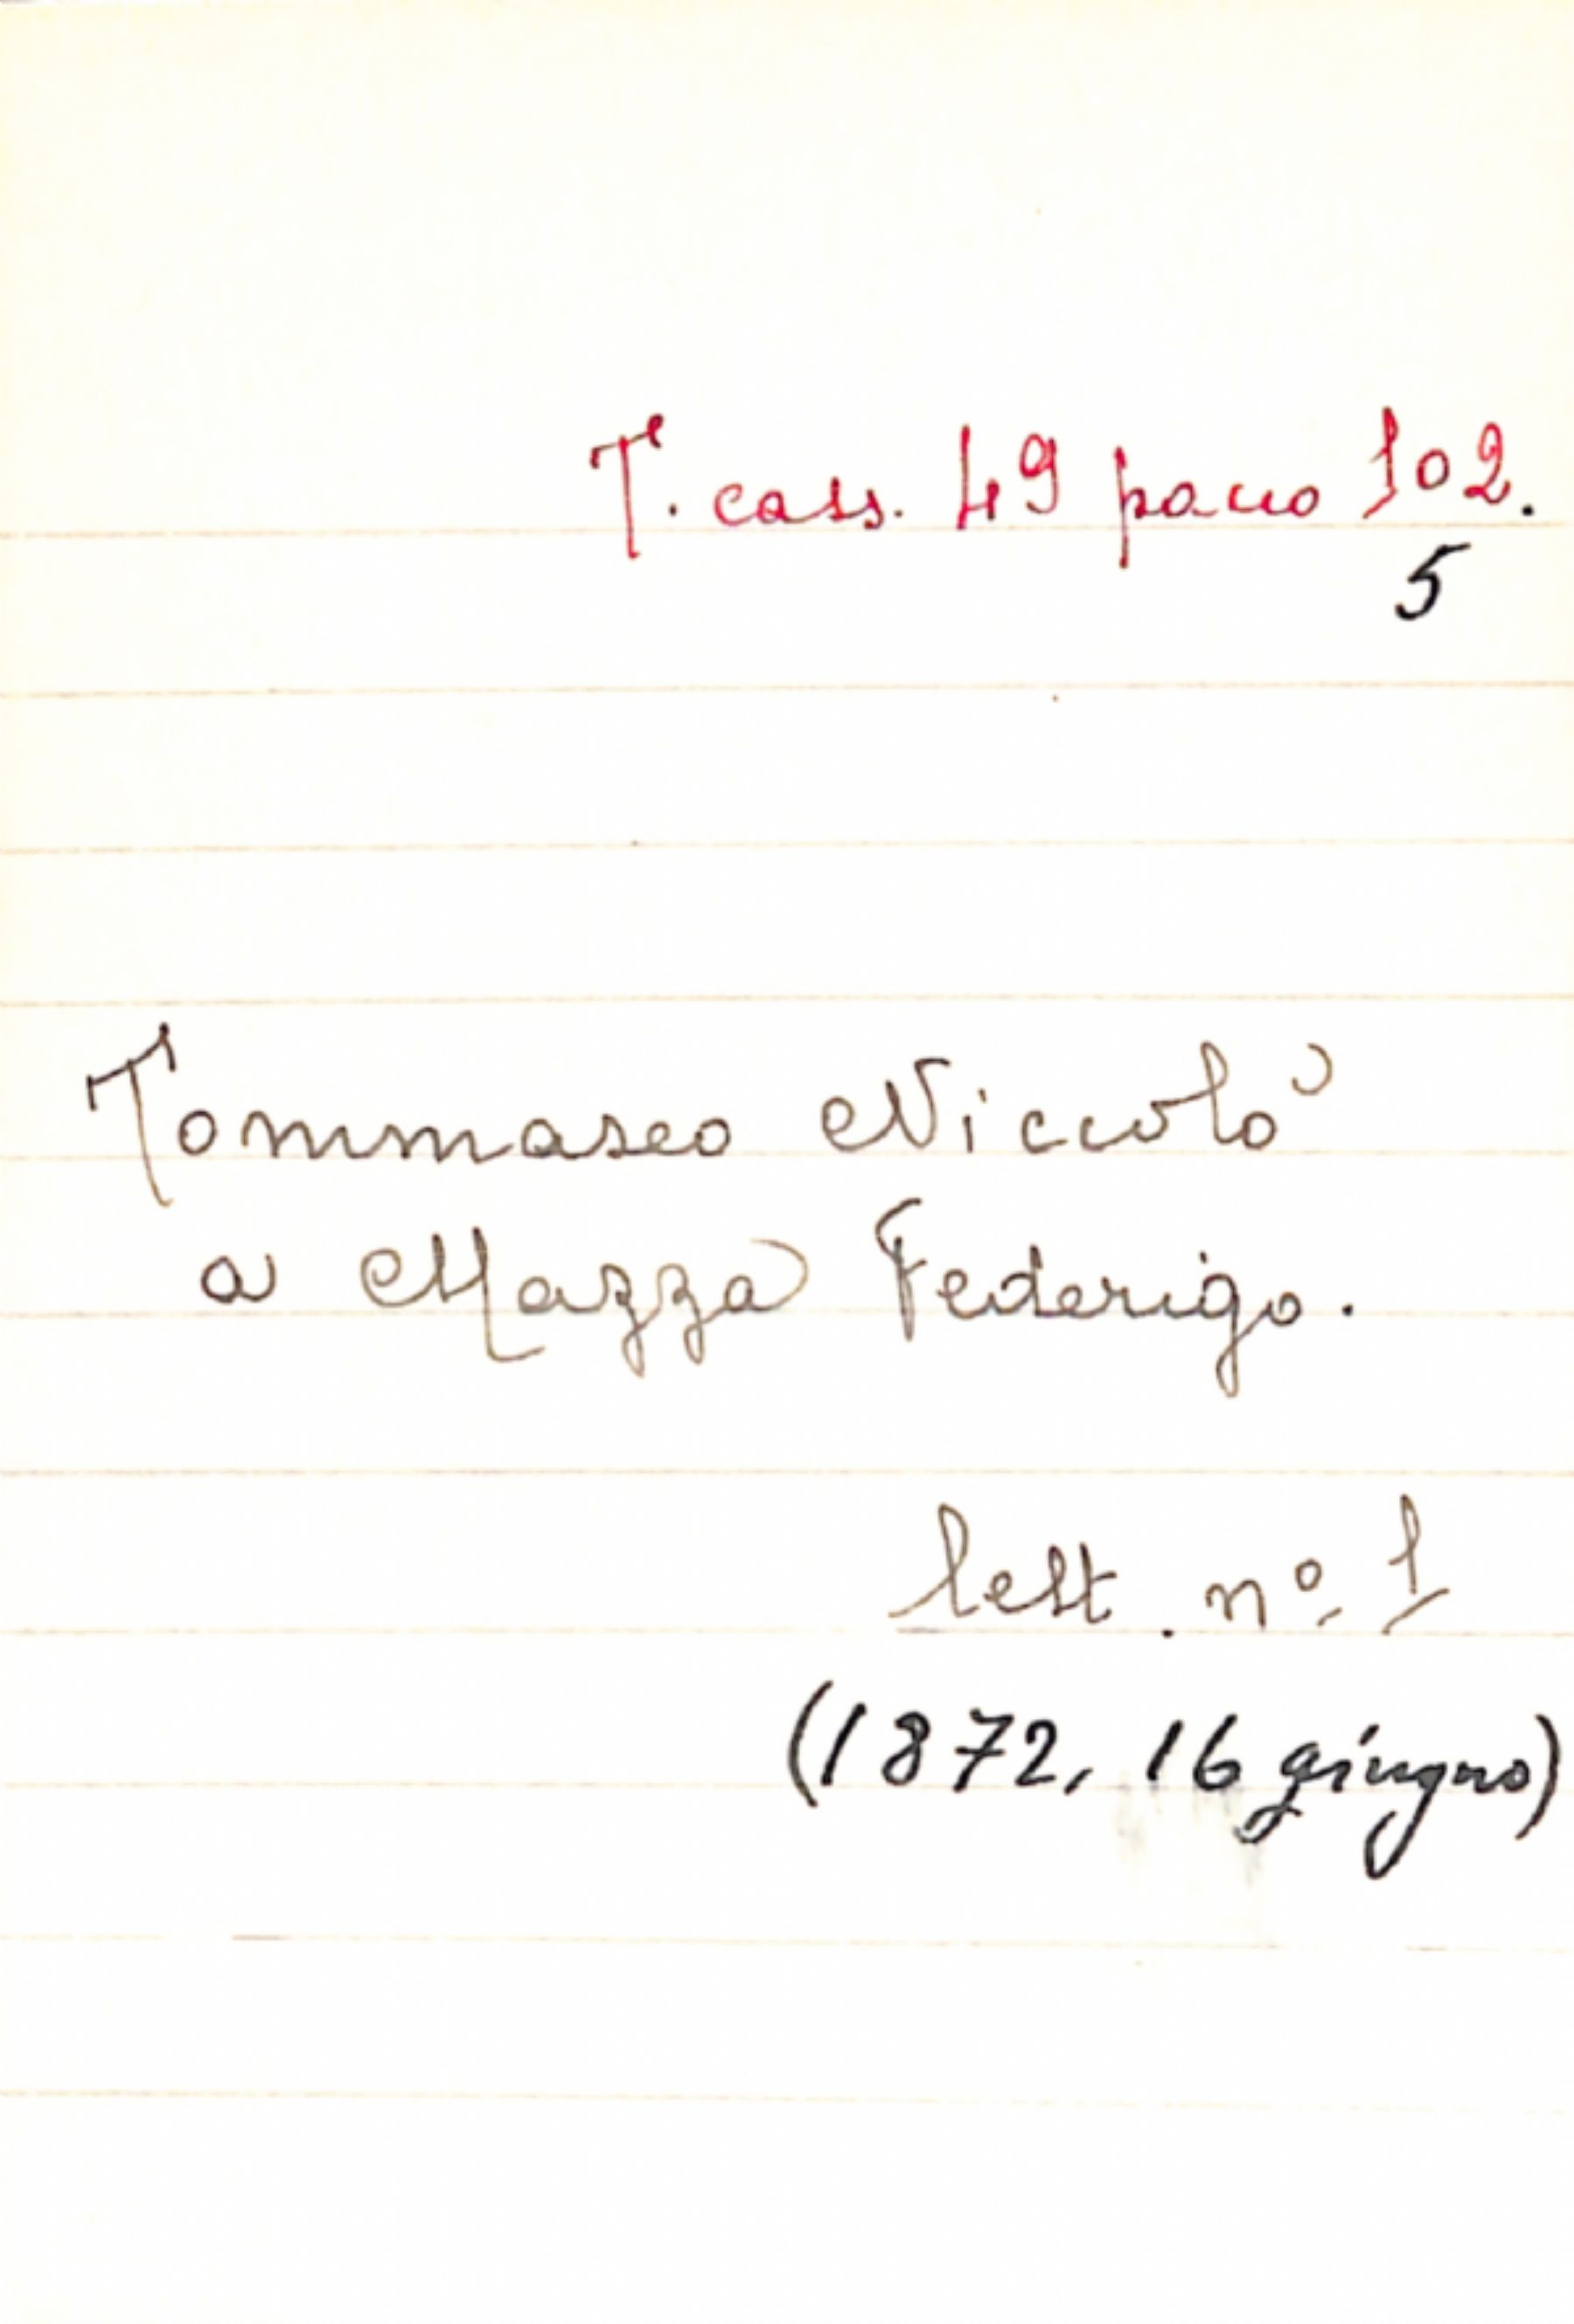 T. cass. 49 pacco 102.
5
Tommaseo Niccolò
a Mazza Federigo.
lett. nº 1
(1872, 16 giugno)